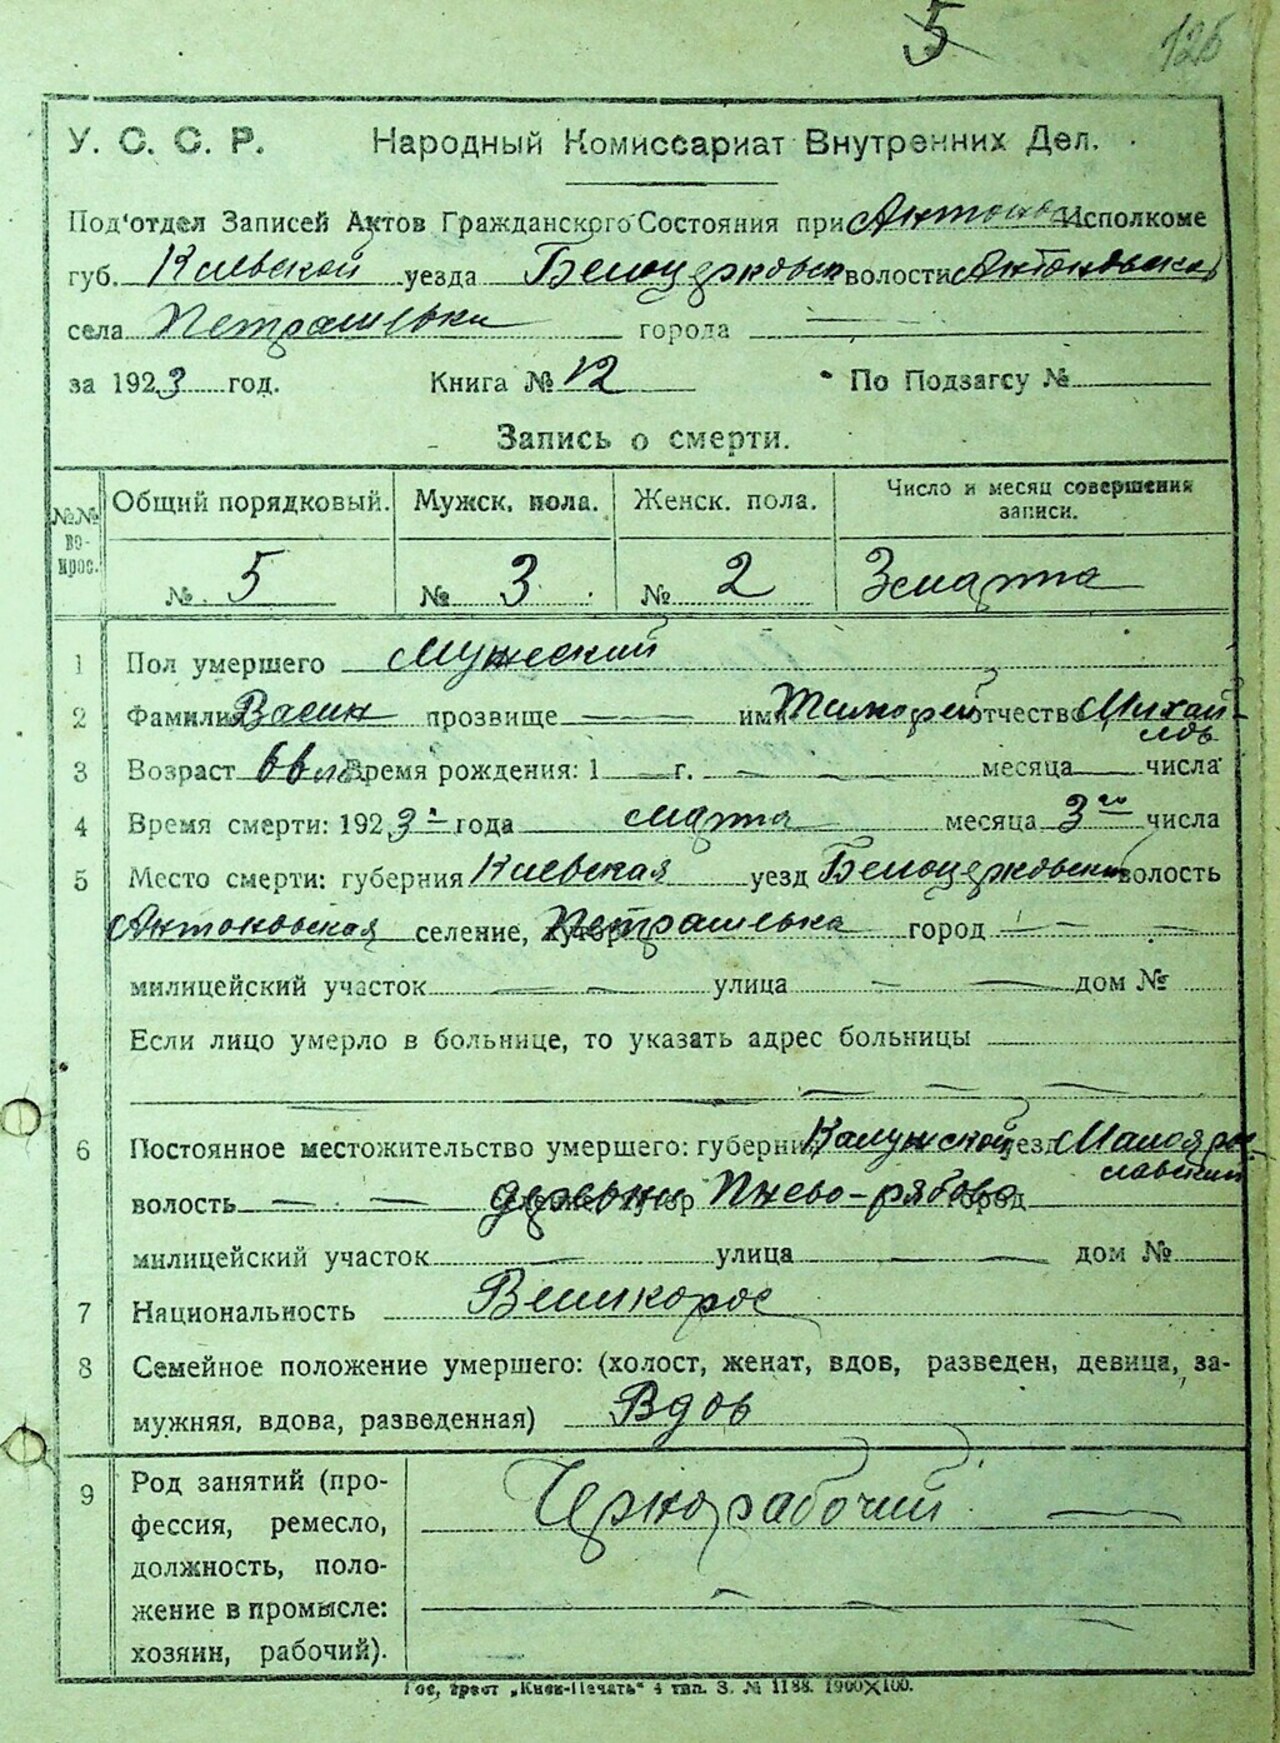 5 126
У. С. С. Р. Народный Комиссариат Внутренних Дел.
Под'отдел Записей Актов Гражданского Состояния при Антонов Исполкоме
губ. Киевской уезда Белоцерковск волости Антоновской
села Петрашевки города
за 1923 год. Книга № 12 По Подзагсу №
Запись о смерти.
№№ во-прос. Общий порядковый. Мужск. пола. Женск. пола. Число и месяц совершения записи.
№ 5 № 3 № 2 3 марта
1 Пол умершего Мужеский
2 Фамилия Васин прозвище имя Тимофей отчество Михай-
лов
3 Возраст 66 л. Время рождения: 1 г. месяца числа
4 Время смерти: 1923 года марта месяца 3го числа
5 Место смерти: губерния Киевская уезд Белоцерковский волость
Антоновская селение, хутор Петрашевка город
милицейский участок улица дом №
Если лицо умерло в больнице, то указать адрес больницы
6 Постоянное местожительство умершего: губерния Калужской уезд Малояро-
славский
волость деревни хутор Пнево-рябово город
милицейский участок улица дом №
7 Национальность Великорос
8 Семейное положение умершего: (холост, женат, вдов, разведен, девица, за-
мужняя, вдова, разведенная) Вдов
9 Род занятий (про-
фессия, ремесло, Чернорабочий
должность, поло-
жение в промысле:
хозяин, рабочий).
Гос. трест „Киев-Печать“ 4 тип. З. № 1188. 1900×100.